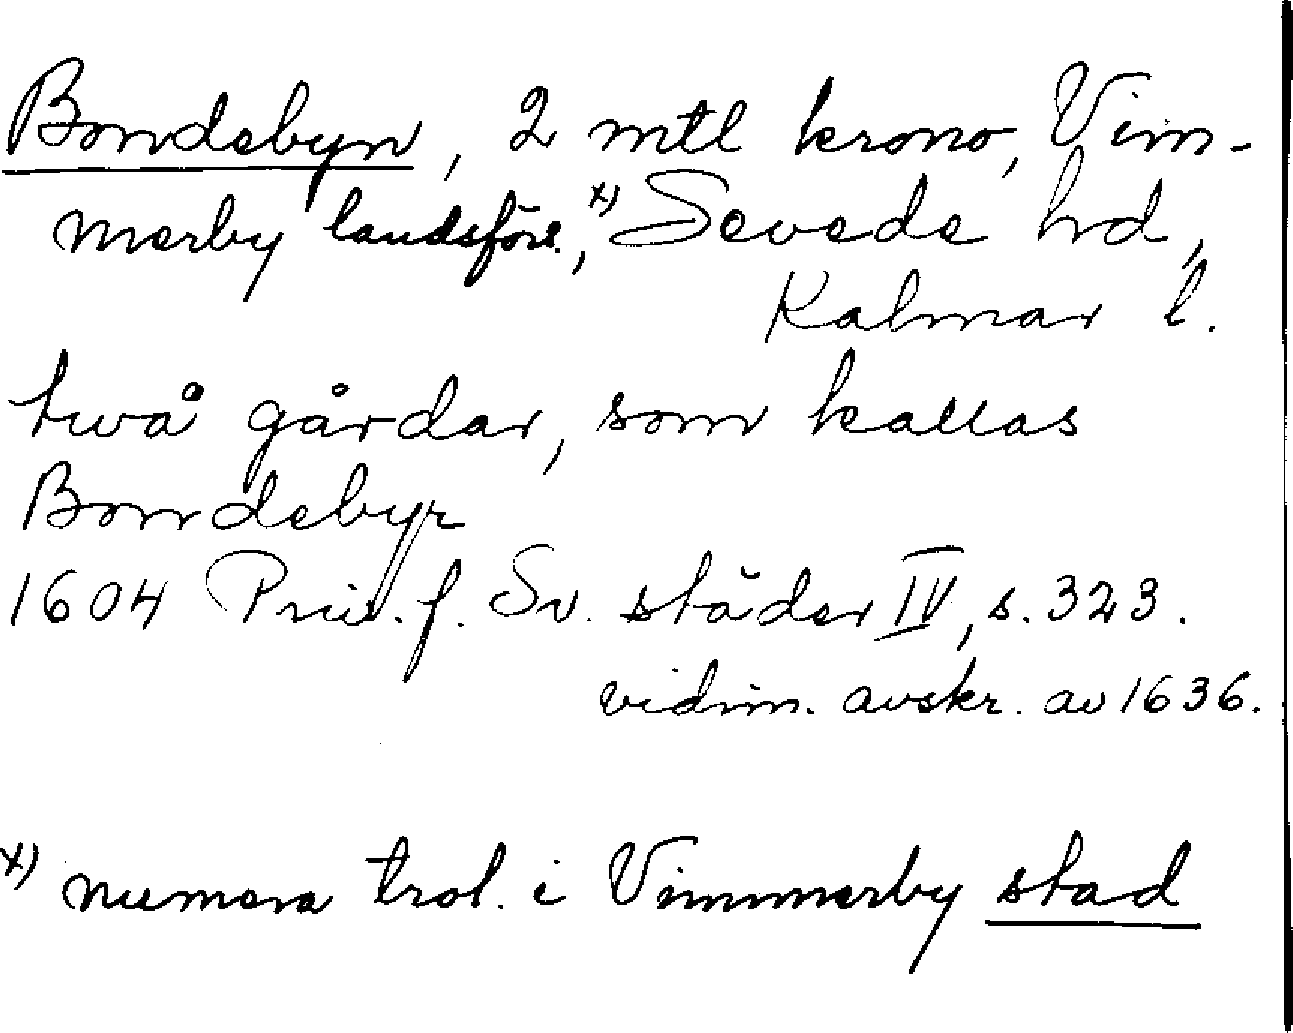 Bondebyn, 2 mtl krono, Vim-
merby landsförs.,x) Sevede hd,
Kalmar l.
två gårdar, som kallas
Bondebyr
1604 Priv. f. Sv. städer IV, s. 323.
vidim. avskr. av 1636.
x) numera trol. i Vimmerby stad